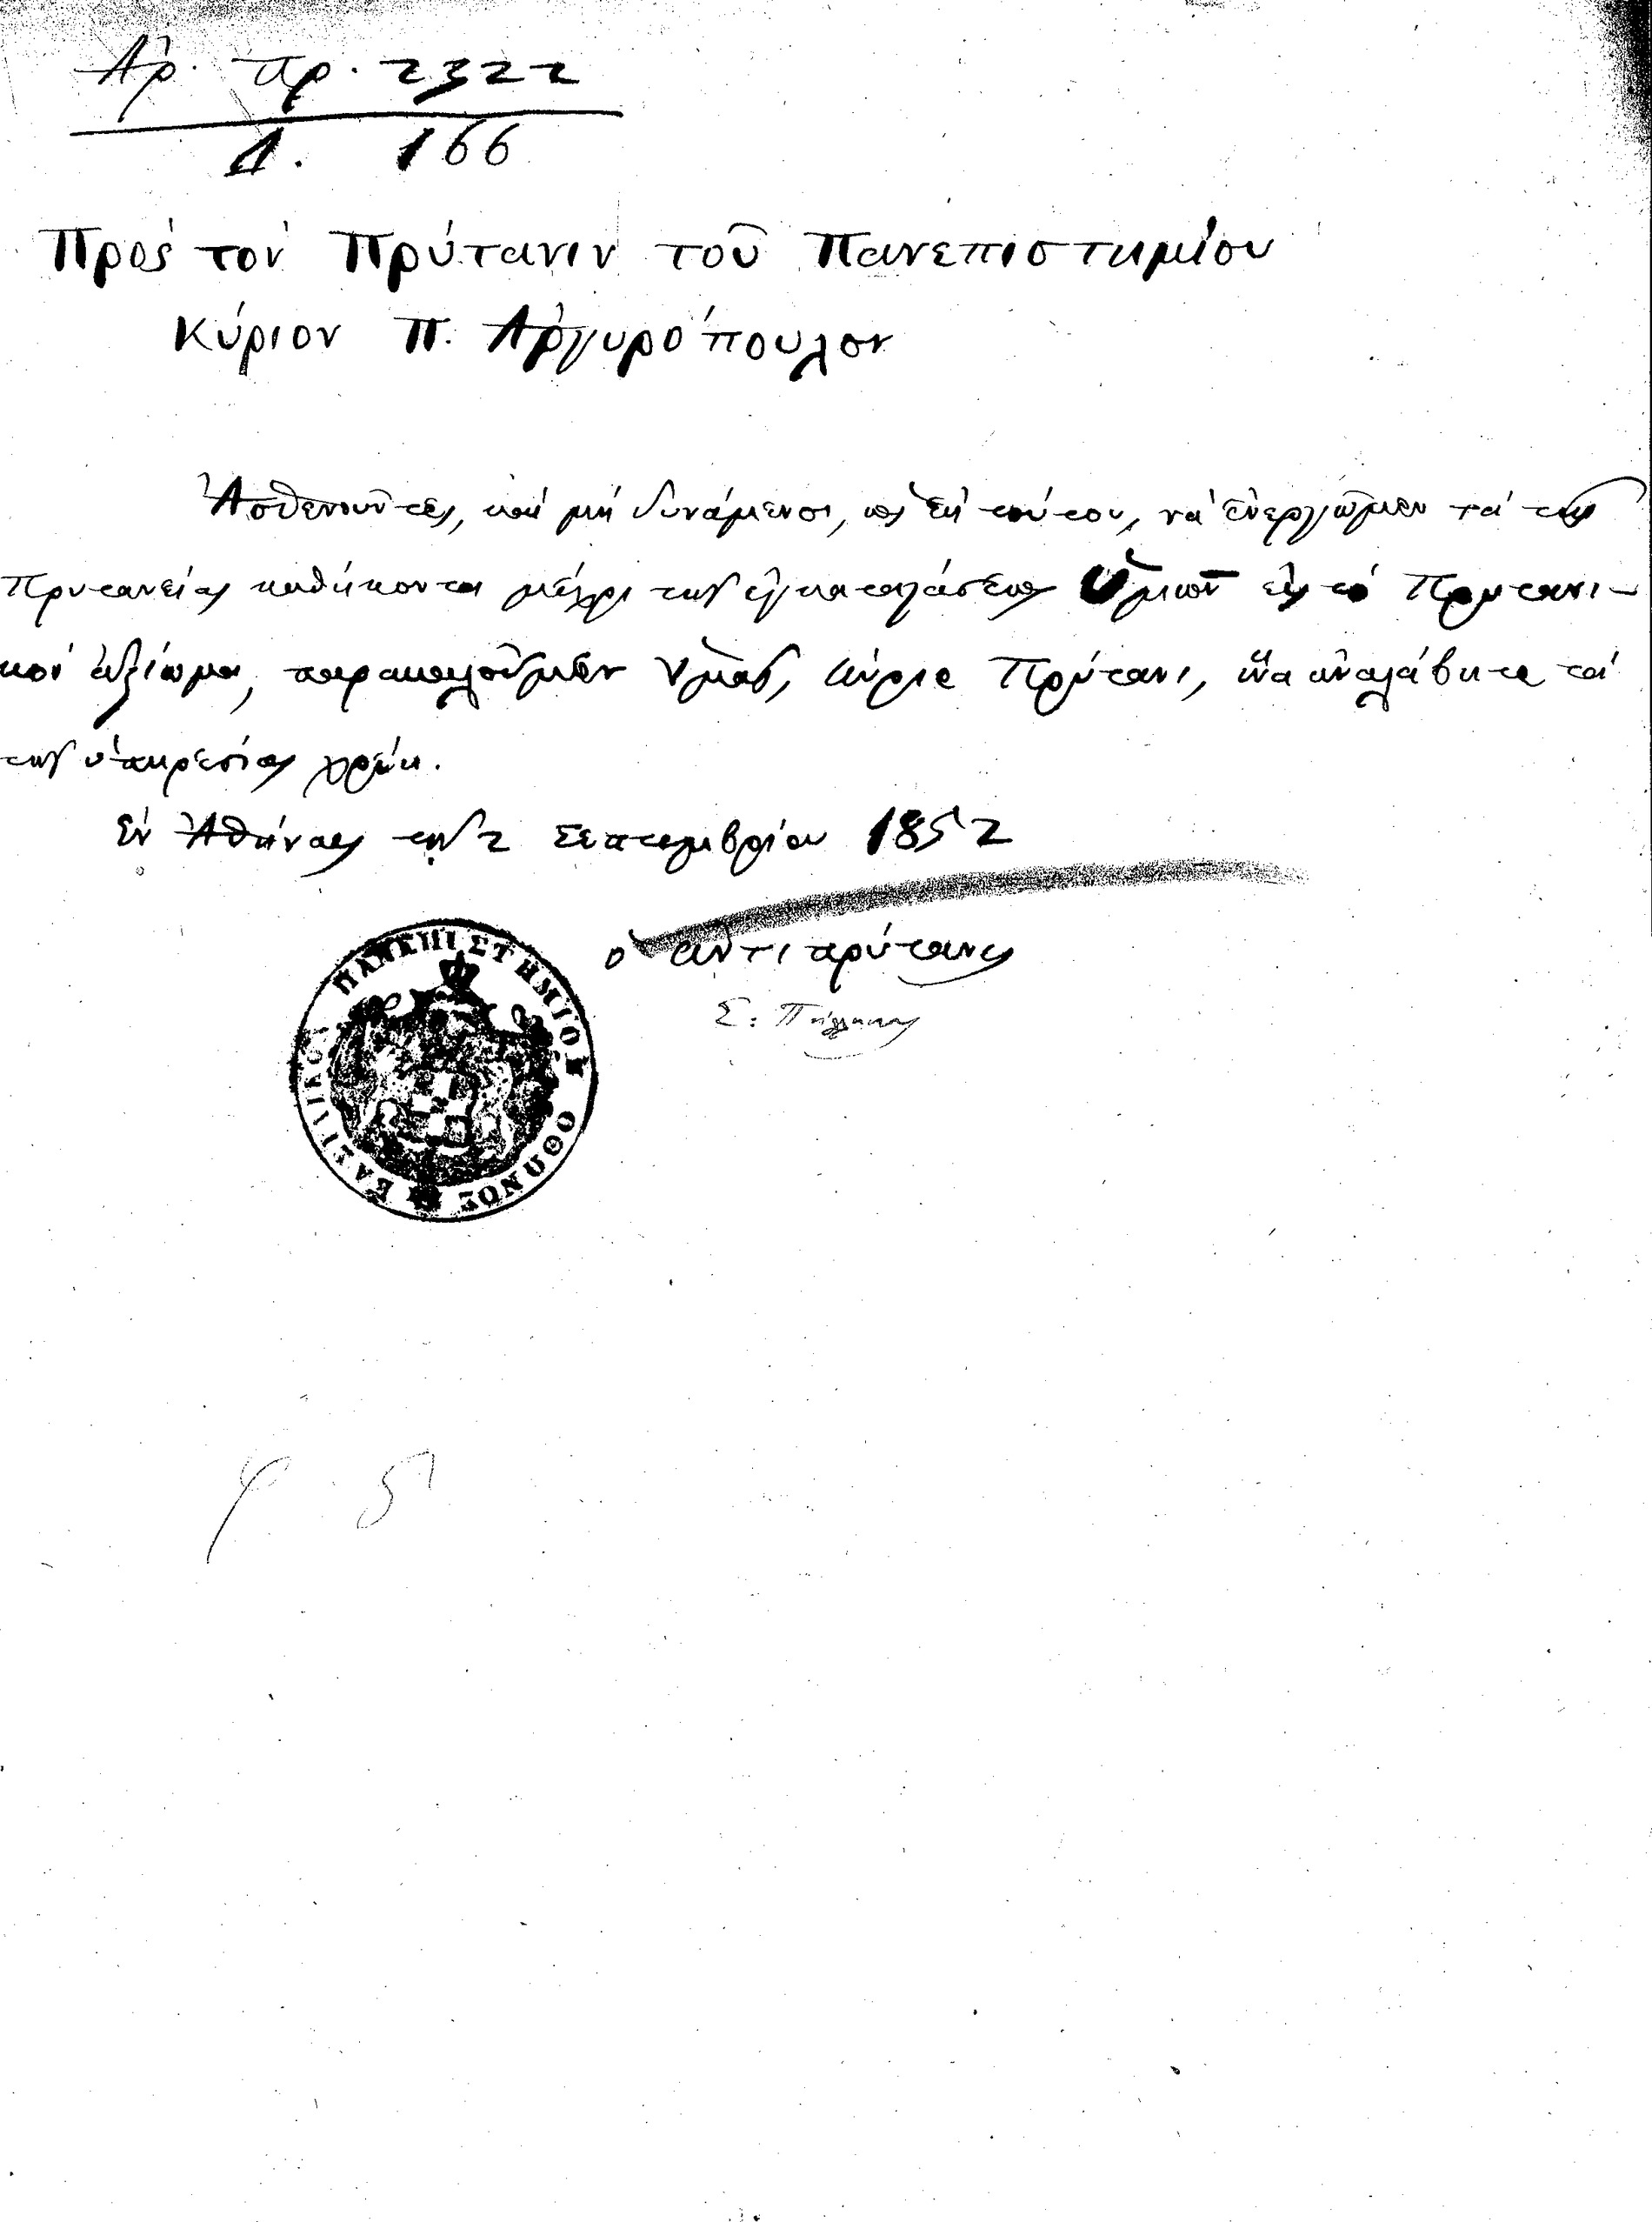 Ἀρ. πρ. 2322
Δ. 166
Πρὸς τὸν Πρύτανιν τοῦ Πανεπιστημίου
Κύριον Π. Ἀργυρόπουλον
Ἀσθενοῦντες, καὶ μὴ δυνάμενοι, ὡς ἐκ τούτου, νὰ ἐνεργῶμεν τὰ τῆς
Πρυτανείας καθήκοντα μέχρι τῆς ἐγκαταστάσεως Ὑμῶν εἰς τὸ Πρυτανι-
κὸν ἀξίωμα, παρακαλοῦμεν Ὑμᾶς, Κύριε Πρύτανι, ἵνα ἀναλάβητε τὰ
τῆς ὑπηρεσίας χρέη.
Ἐν Ἀθήναις τῇ 2 Σεπτεμβρίου 1852
ὁ ἀντιπρύτανις
Σ. Πήλληκας
ΠΑΝΕΠΙΣΤΗΜΙΟΥ ΟΘΩΝΟΣ
φ 51